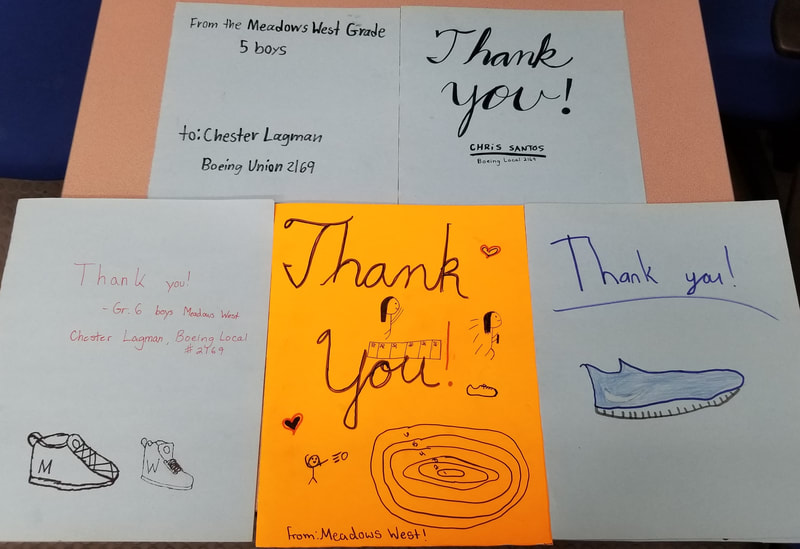 From the Meadows West Grade
5 boys
to: Chester Lagman
Boeing Union 2169
Thank
you!
CHRiS SANTOS
Boeing Local 2169
Thank you!
- Gr. 6 boys Meadows West
Chester Lagman, Boeing Local
# 2169
M
W
Thank
You!
From: Meadows West!
Thank you!